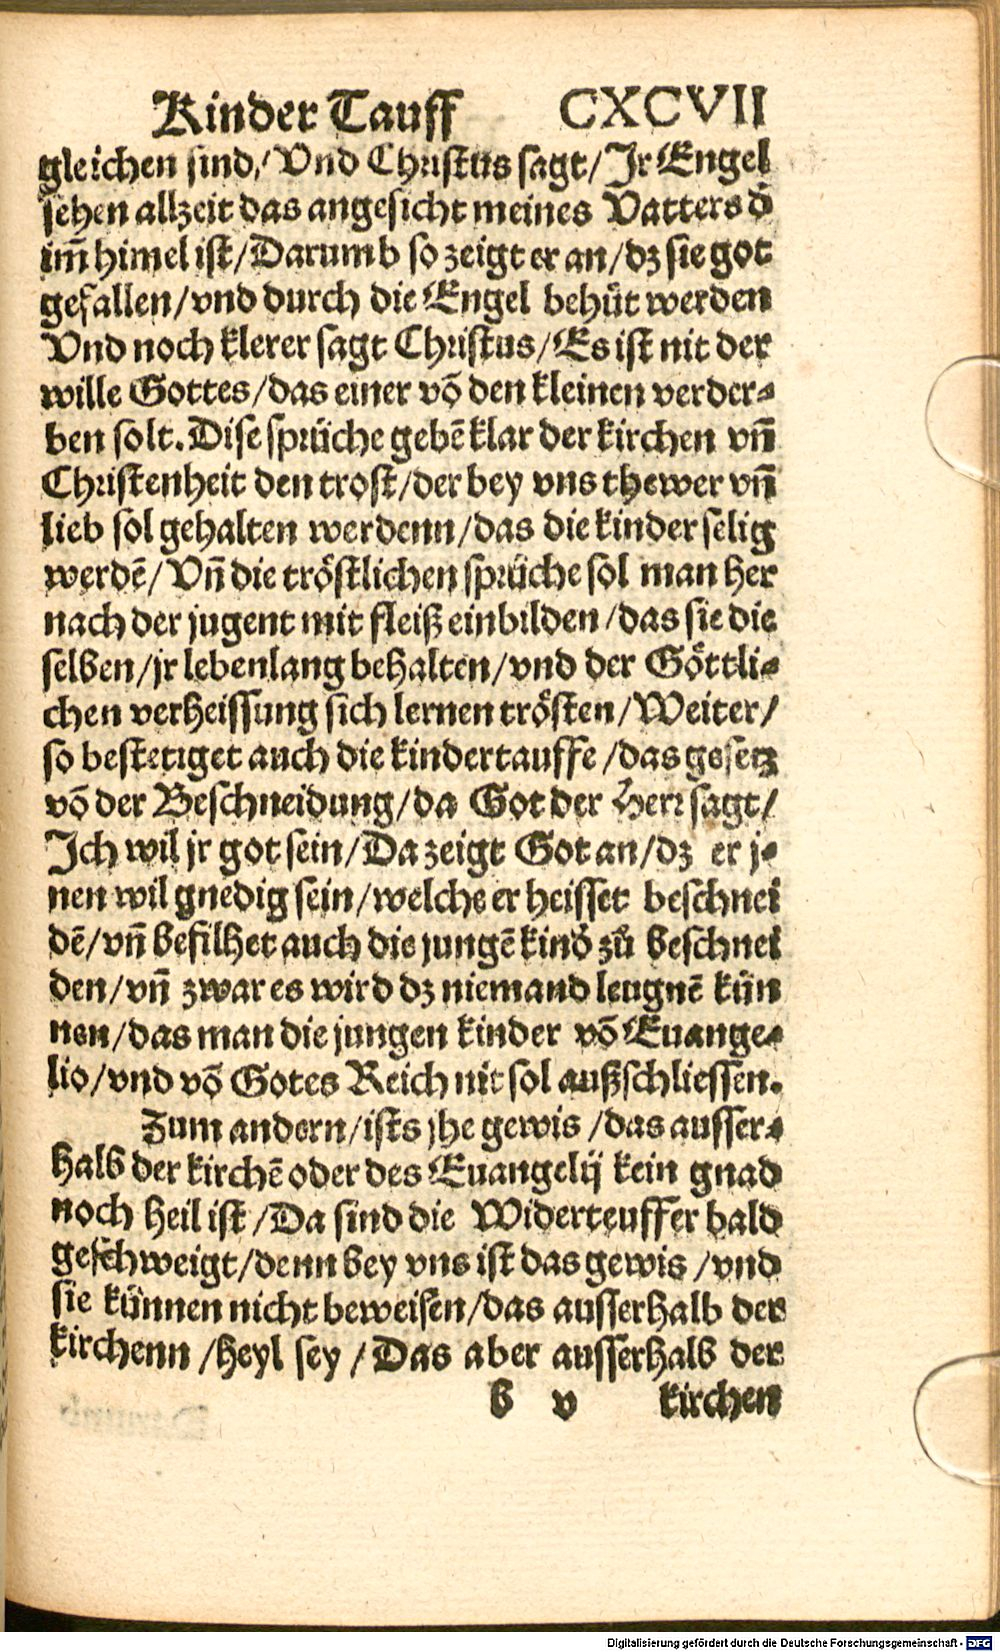 Kinder Tauff CXCVII
gleichen sind/ Vnd Christus sagt/ Jr Engel
sehen allzeit das angesicht meines Vatters d̄
im̄ himel ist/ Darumb so zeigt er an/ dz sie got
gefallen/ vnd durch die Engel behüt werden
Vnd noch klerer sagt Christus/ Es ist nit der
wille Gottes/ das einer võ den kleinen verder⸗
ben solt. Dise sprüche gebē klar der kirchen vn̄
Christenheit den trost/ der bey vns thewer vn̄
lieb sol gehalten werdenn/ das die kinder selig
werdē/ Vn̄ die tröstlichen sprüche sol man her
nach der jugent mit fleiß einbilden/ das sie die
selben/ jr lebenlang behalten/ vnd der Göttli⸗
chen verheissung sich lernen trösten/ Weiter/
so bestetiget auch die kindertauffe/ das gesetz
võ der Beschneidung/ da Got der Herr sagt/
Ich wil jr got sein/ Da zeigt Got an/ dz er j⸗
nen wil gnedig sein/ welche er heisset beschnei
dē/ vn̄ befilhet auch die jungē kind̄ zů beschnei
den/ vn̄ zwar es wird dz niemand leugnē kün
nen/ das man die jungen kinder võ Euange⸗
lio/ vnd võ Gotes Reich nit sol außschliessen.
Zum andern/ ists jhe gewis/ das ausser⸗
halb der kirchē oder des Euangelij kein gnad
noch heil ist/ Da sind die Widerteuffer bald
geschweigt/ denn bey vns ist das gewis/ vnd
sie künnen nicht beweisen/ das ausserhalb der
kirchenn/ heyl sey/ Das aber ausserhalb der
b v kirchen
Digitalisierung gefördert durch die Deutsche Forschungsgemeinschaft - DFG